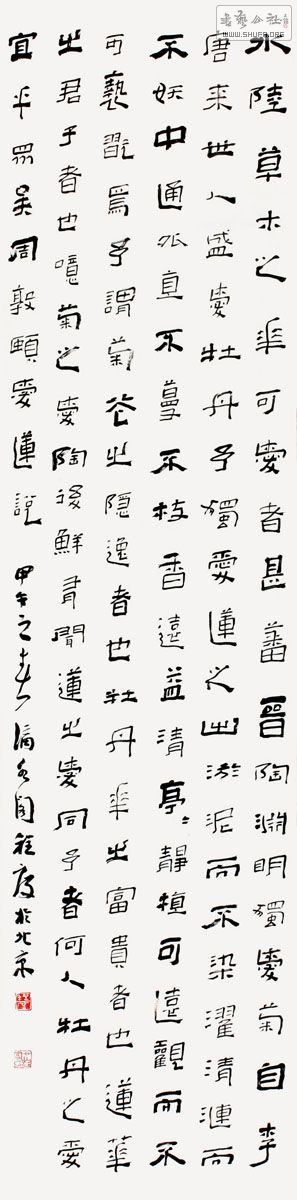 水陸草木之華可愛者甚蕃晉陶淵明獨愛菊自李
唐来世人盛愛牡丹予獨愛蓮之出淤泥而不染濯清漣而
不妖中通外直不蔓不枝香遠益清亭:靜植可遠觀而不
可褻翫焉予謂菊花之隱逸者也牡丹華之富貴者也蓮華
之君子者也噫菊之愛陶後鮮有聞蓮之愛同予者何人牡丹之愛
宜乎眾矣周敦頤愛蓮說
甲午之春
於北京
WWW.SHUFA.ORG